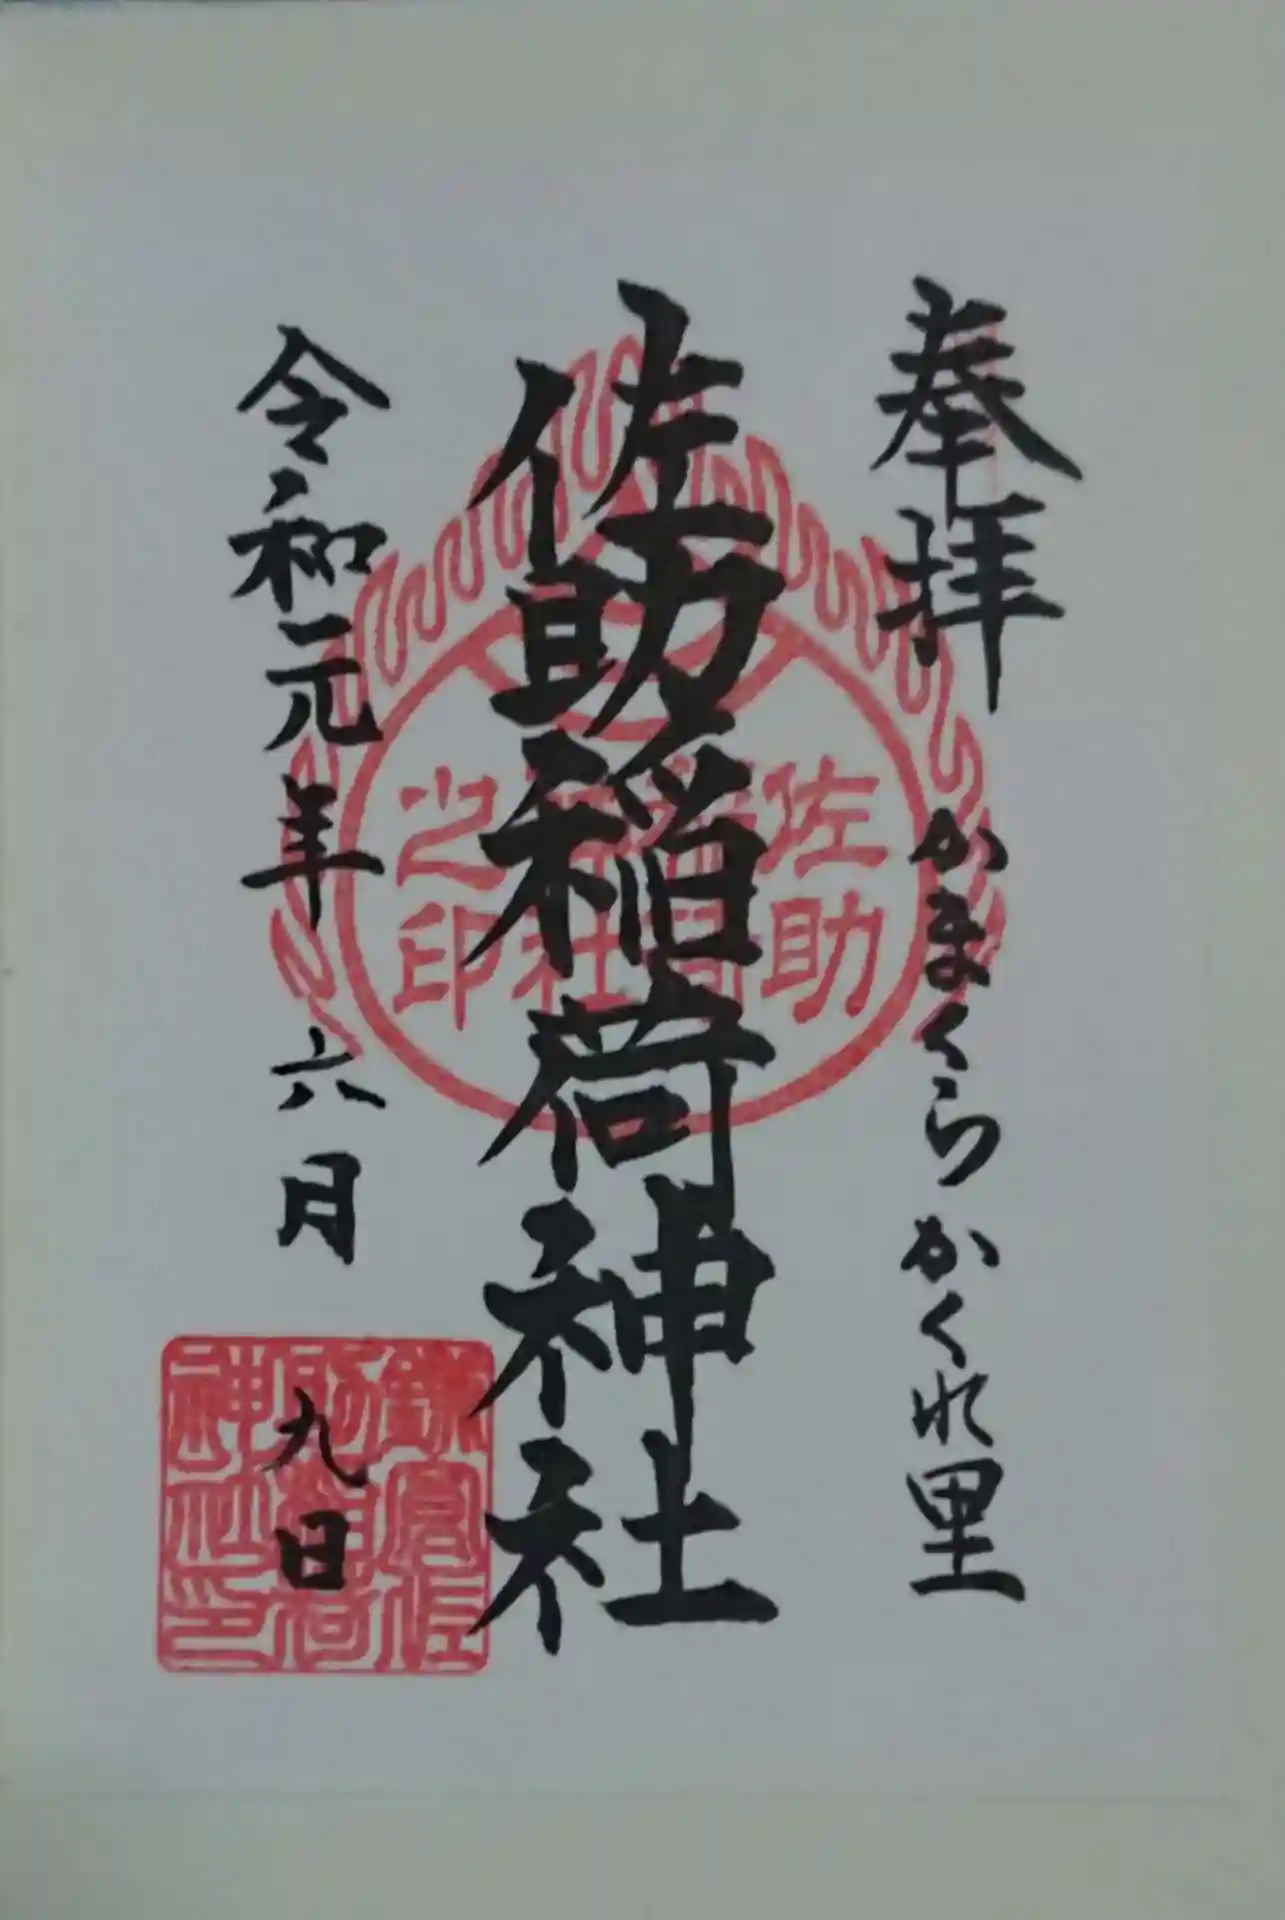 奉拝
かまくらかくれ里
佐助稲荷神社
令和元年六月九日
佐助
稲荷
神社
之印
鎌倉佐
助稲荷
神社印